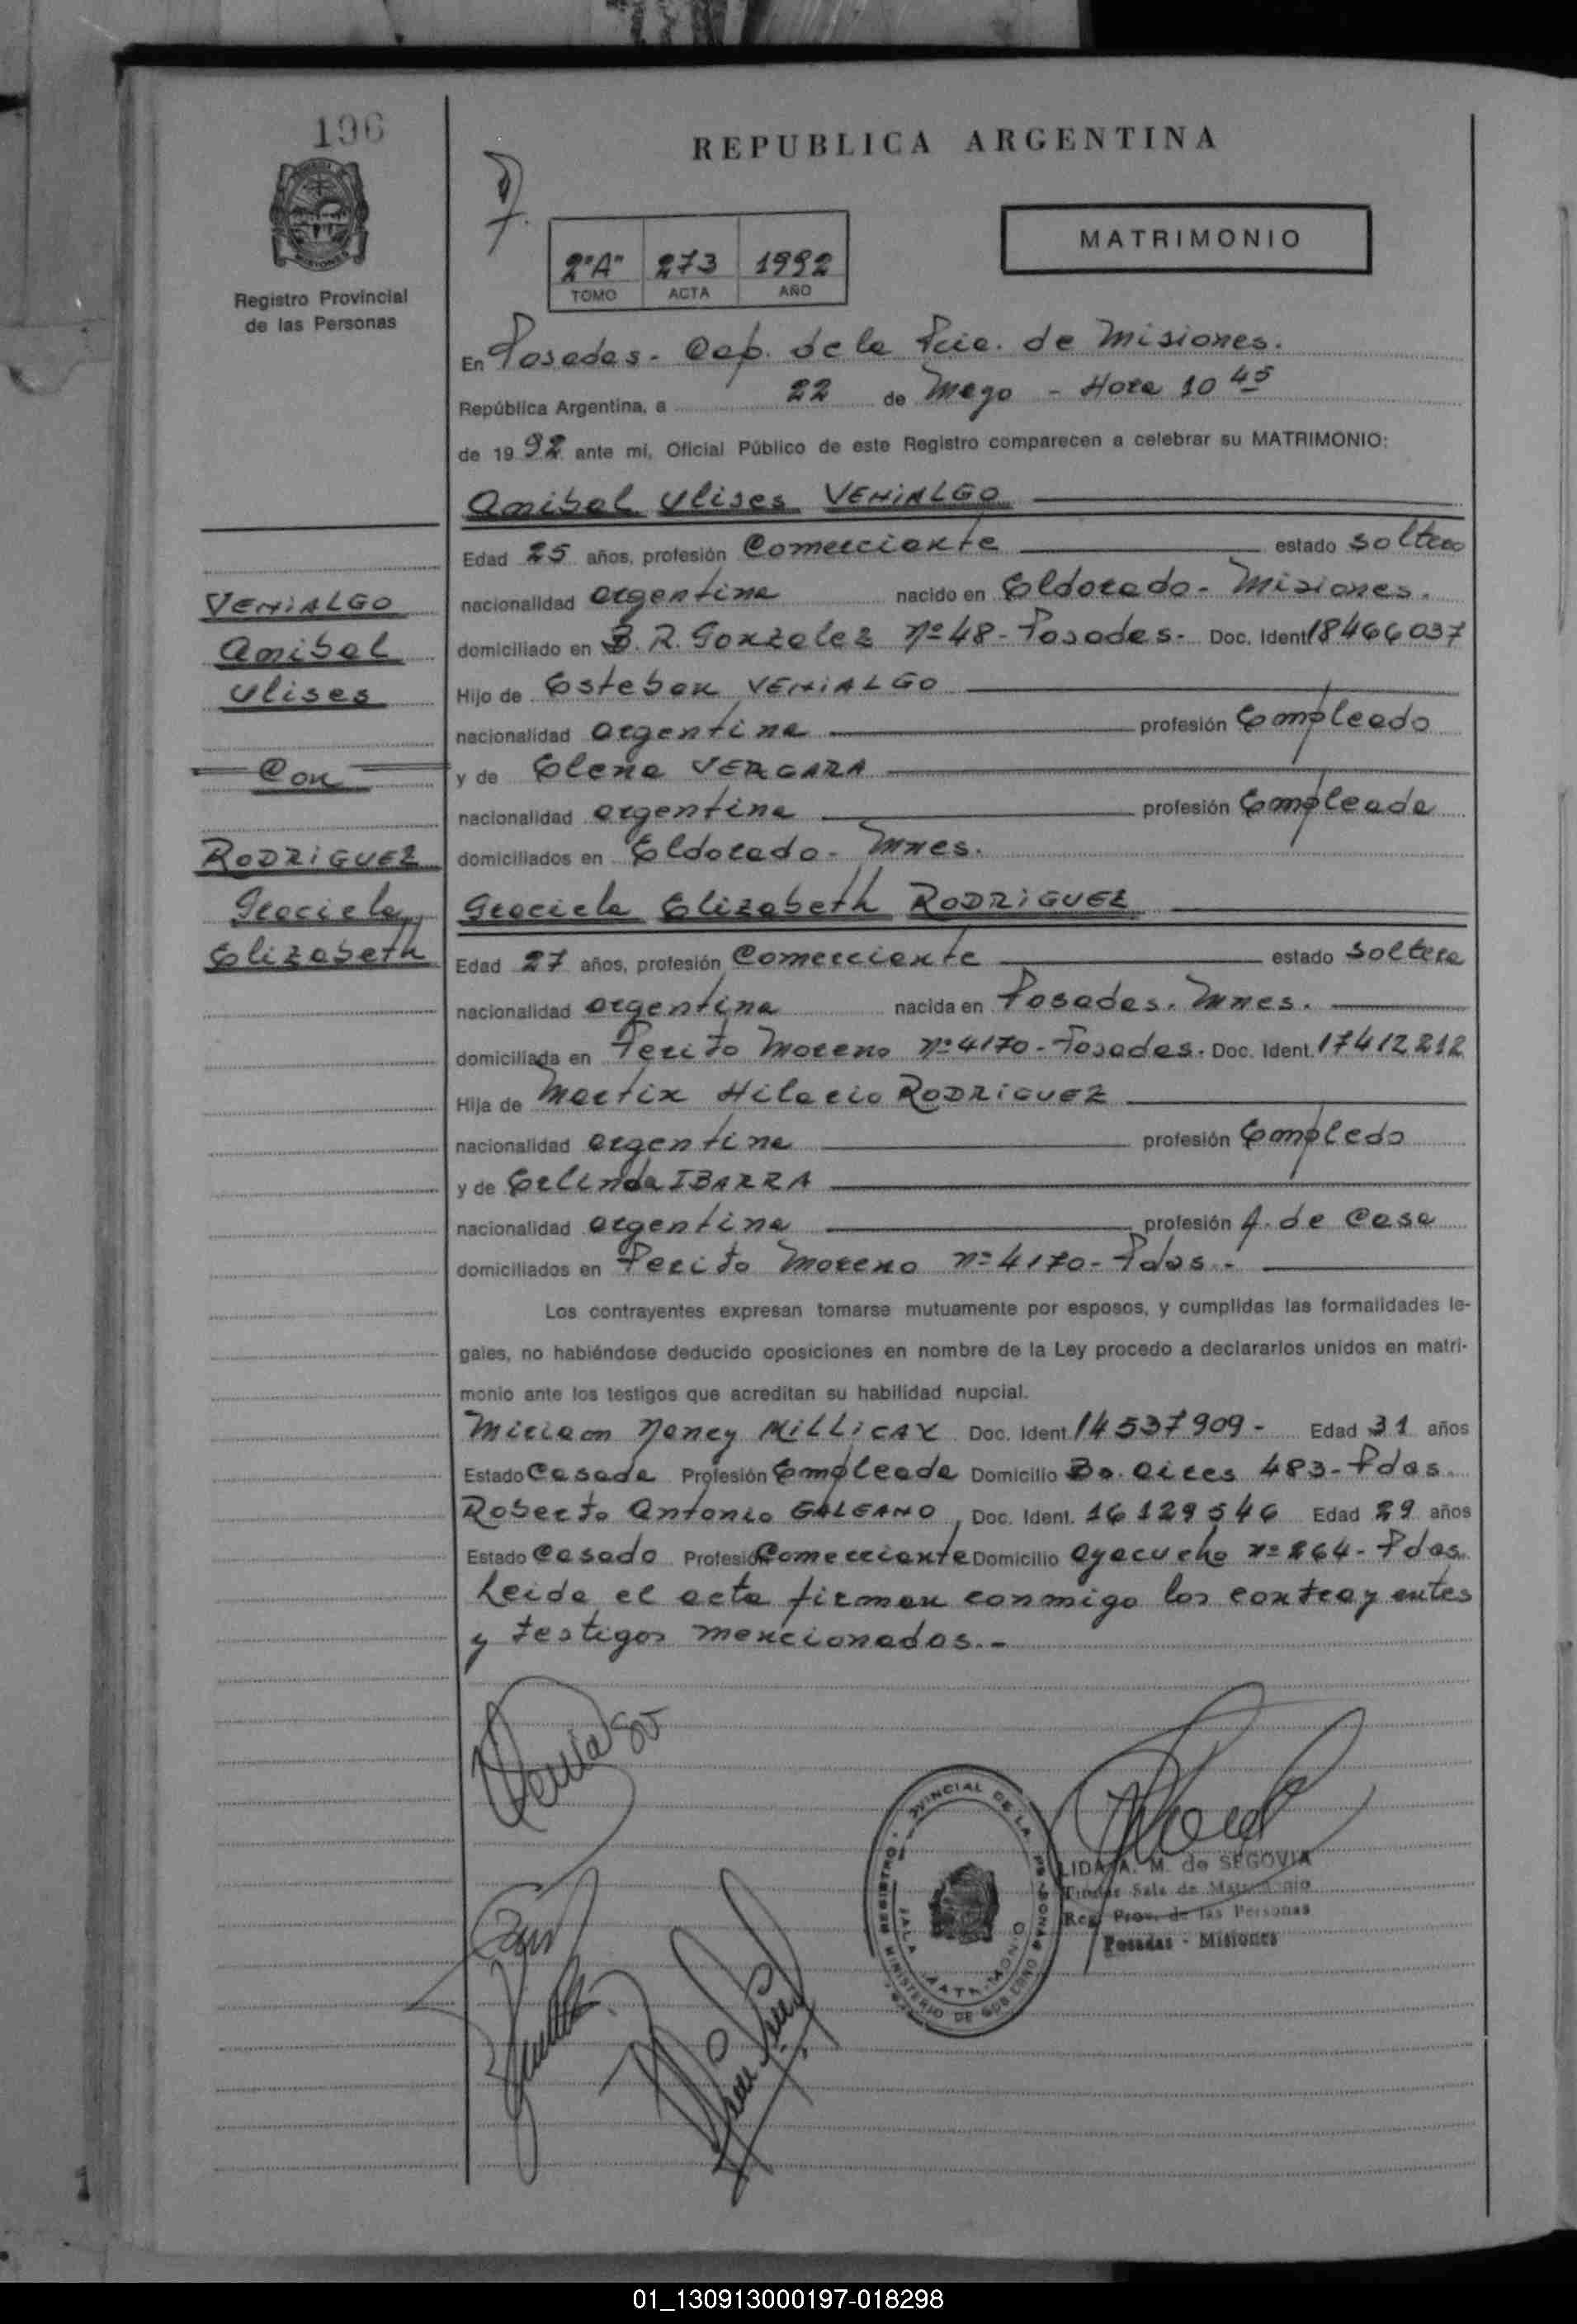 196
REPUBLICA ARGENTINA
MATRIMONIO
2"A" 273 1992
TOMO ACTA AÑO
Registro Provincial
de las Personas
En Posadas - Cap. de la Pcia. de Misiones.
República Argentina, a 22 de Mayo - Hora 10 45
de 1992 ante mi, Oficial Público de este Registro comparecen a celebrar su MATRIMONIO:
Anibal Ulises VENIALGO
Edad 25 años, profesión Comerciante estado soltero
nacionalidad argentina nacido en Eldorado - Misiones.
domiciliado en B. R. Gonzalez Nº 48 - Posadas - Doc. Ident 18466037
Hijo de Esteban VENIALGO
nacionalidad argentina profesión Empleado
y de Elena VERGARA
nacionalidad argentina profesión Empleada
domiciliados en Eldorado - Mnes.
VENIALGO
Anibal
Ulises
Con
RODRIGUEZ
Graciela
Elizabeth
Graciela Elizabeth RODRIGUEZ
Edad 27 años, profesión Comerciante estado soltera
nacionalidad argentina nacida en Posadas. Mnes.
domiciliada en Perito Moreno Nº 4170 - Posadas. Doc. Ident. 17412212
Hija de Martin Hilario RODRIGUEZ
nacionalidad argentina profesión Empledo
y de Erlinda IBARRA
nacionalidad argentina profesión A. de Casa
domiciliados en Perito Moreno Nº 4170 - Pdas. -
Los contrayentes expresan tomarse mutuamente por esposos, y cumplidas las formalidades le-
gales, no habiéndose deducido oposiciones en nombre de la Ley procedo a declararlos unidos en matri-
monio ante los testigos que acreditan su habilidad nupcial.
Miriam Nancy MILLICAY Doc. Ident 14537909 - Edad 31 años
Estado Casada Profesión Empleada Domicilio Bs. Aires 483 - Pdas.
Roberto Antonio GALEANO, Doc. Ident. 16129546 Edad 29 años
Estado Casado Profesión Comerciante Domicilio Ayacucho Nº 264 - Pdas.
Leida el acta firman conmigo los contrayentes
y testigos mencionados. -
LIDA A. M. de SEGOVIA
Titular Sala de Matrimonio
Reg. Prov. de las Personas
Posadas - Misiones
01_130913000197-018298